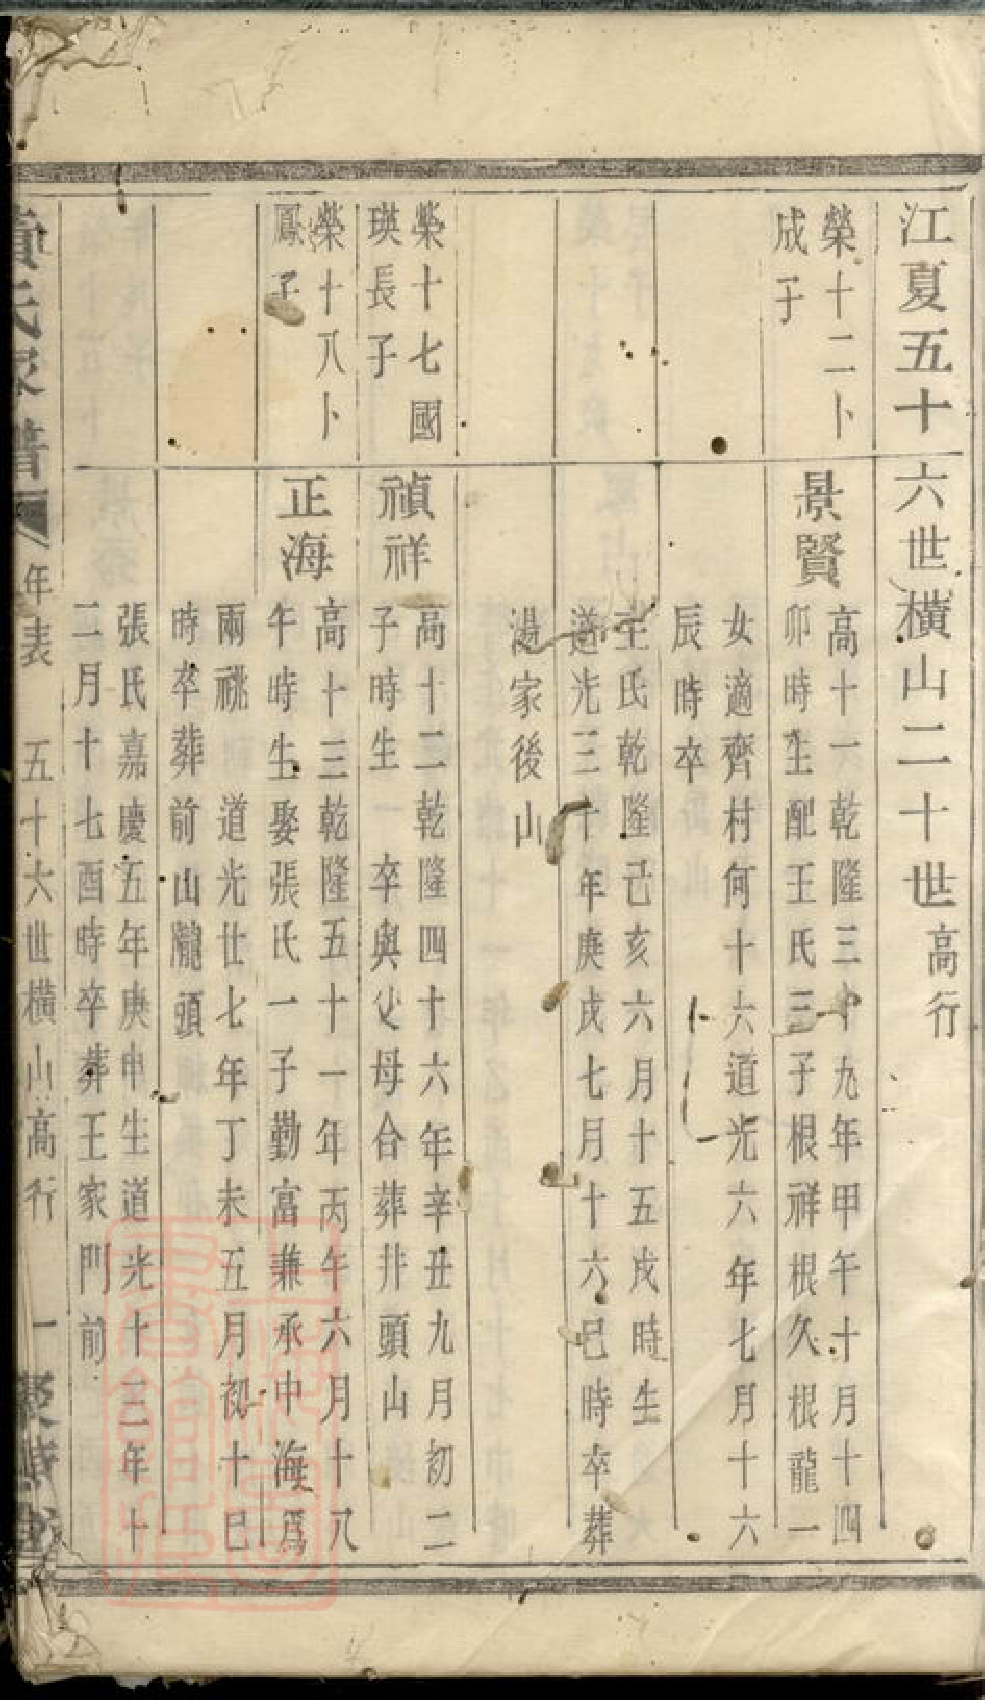 江夏五十六世橫山二十世高行
榮十二卜
成子
景賢
高十一乾隆三十九年甲午十月十四
卯時生配王氏三子根祥根久根龍一
女適齊村何十六道光六年七月十六
辰時卒
王氏乾隆己亥六月十五戌時生
道光三十年庚戌七月十六巳時卒葬
湯家後山
榮十七國
瑛長子
禎祥
高十二乾隆四十六年辛丑九月初二
子時生 卒與父母合葬井頭山
榮十八卜
鳳子
正海
高十三乾隆五十一年丙午六月十八
午時生娶張氏一子勤富兼承中海爲
兩祧 道光廿七年丁未五月初十巳
時卒葬前山瀧頭
張氏嘉慶五年庚申生道光十二年十
二月十七酉時卒葬王家門前
黃氏家譜 年表 五十六世橫山高行 一 聚